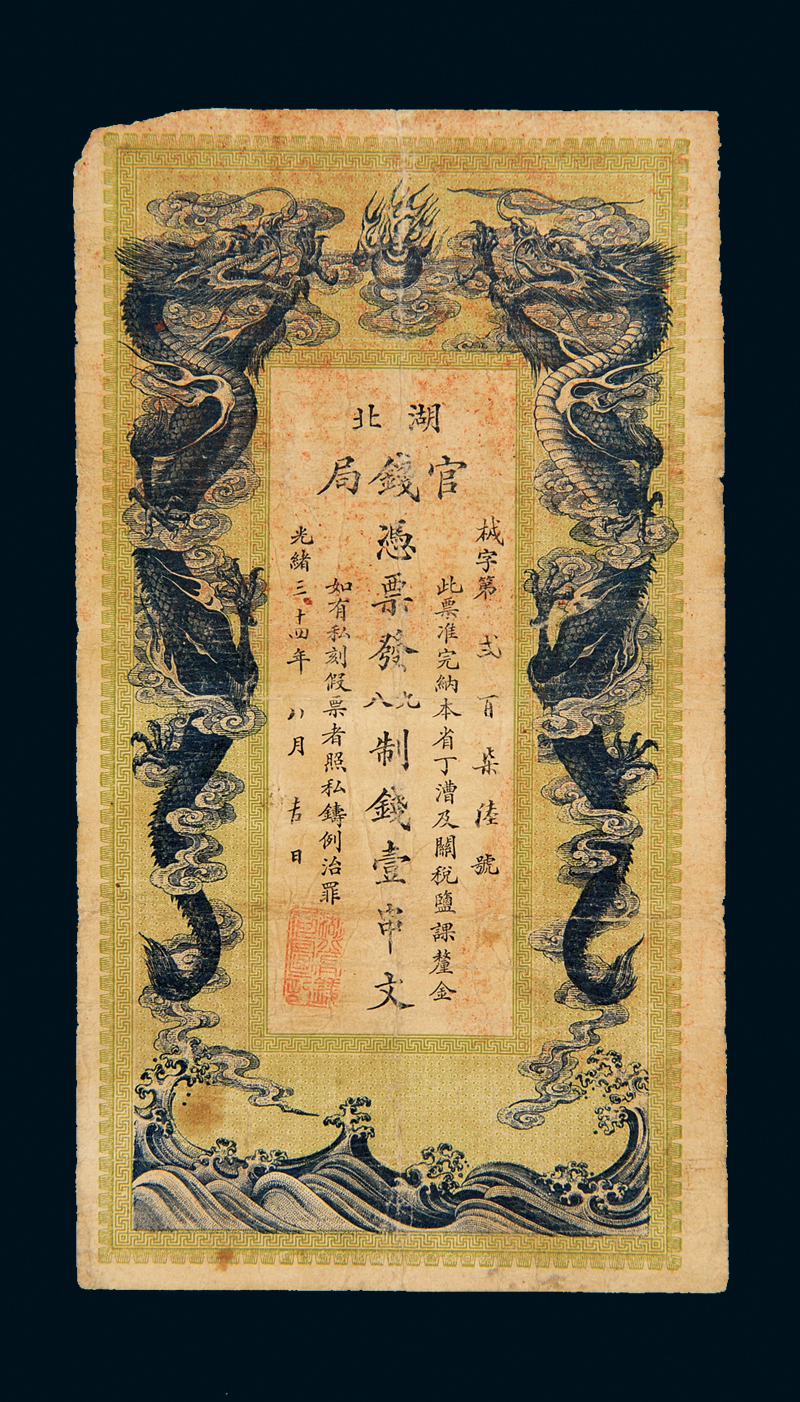 湖北
官錢局
棫字第弍百柒陸號
此票准完納本省丁漕及關稅鹽課釐金
憑票發九八制錢壹串文
如有私刻假票者照私鑄例治罪
光緒三十四年八月吉日